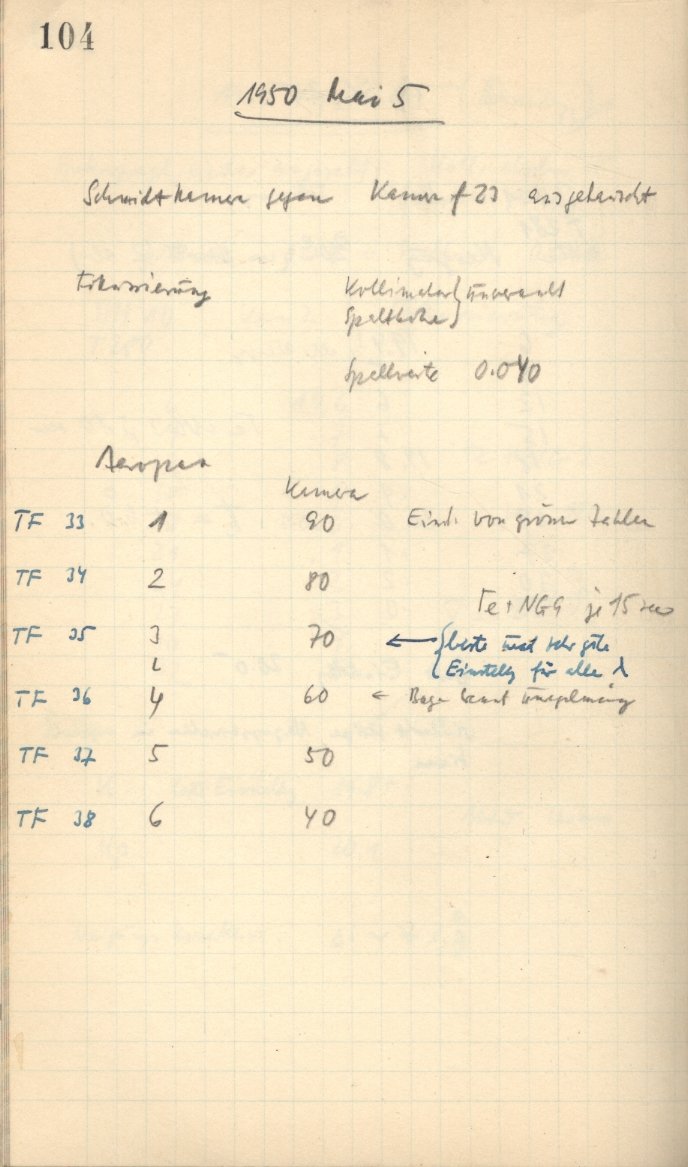 104
1950 Mai 5
Schmidtkamera gegen Kamera f 23 ausgetauscht
Fokussierung Kollimator } unverändert
Spalthöhe
Spaltweite 0.040
Aeropan
Kamera
TF 33 1 90 Einst. von grünen Zahlen
TF 34 2 80
Fe + NGG je 15 sec
TF 35 3 70 ← { beste und sehr gute
Einstellg für alle λ
TF 36 4 60 ←
TF 37 5 50
TF 38 6 40